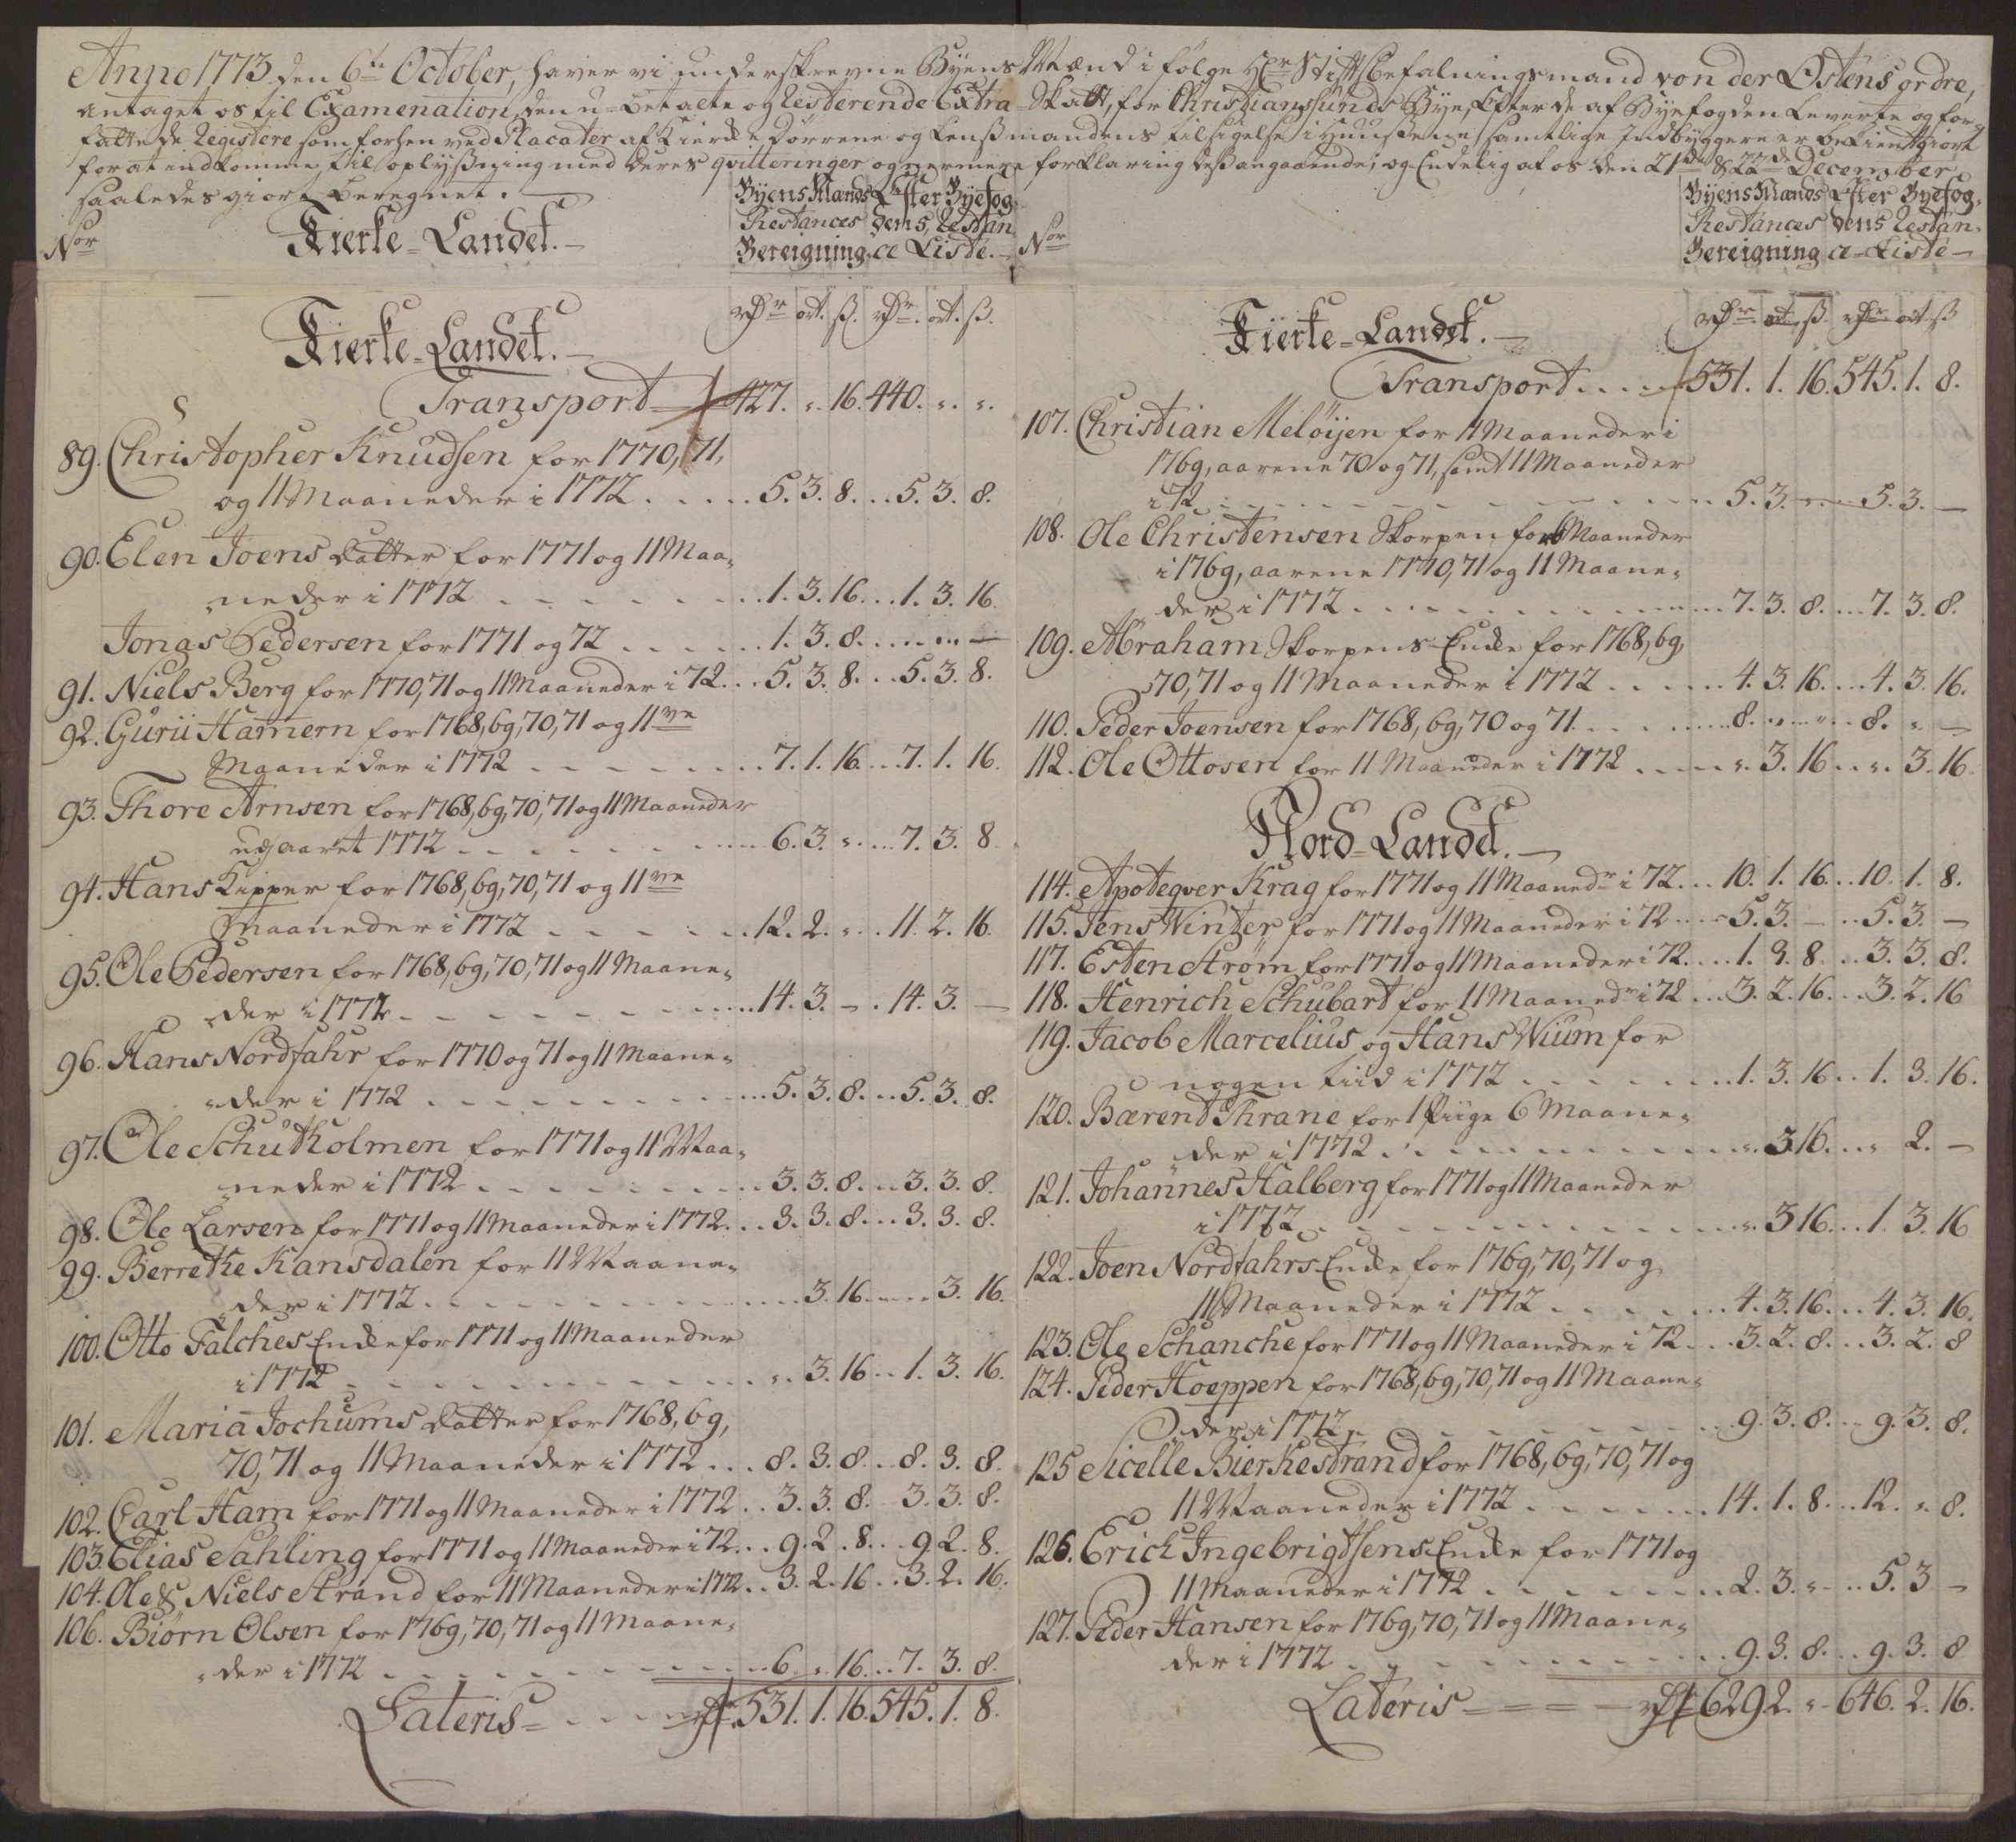 Anno 1773 den 6te October, haver vi underskrevne Byens Mænd i følge Hr Stiftsbefalningsmand von der Østens ordre,
antaget os til Examenation, den u-betalte og Resterende Extra-Skatt, for Christiansunds Bye, Efter de af Byefogden Leverte og for-
fattede Registere som forhen ved Placater af Kierke Dørrene og Lensmandens tilsigelse i Huusene samtlige Indbyggere er bekientgiort
for at indkomme til oplysning med deres qvitteringer og nermere forklaring des angaaende; og Endelig af os den 21de & 22de December
saaledes giort beregnet.
Nor
Kierke-Landet.
Byens Mænds Efter Byefog-
Restances dens Restan-
Bereigning. ce Liste.
Kierke-Landet.
rdr ort. ß. rdr. ort. ß.
Transport 427. " 16. 440. " ".
89. Christopher Knudsen for 1770, 71,
og 11 Maaneder i 1772 . . . 5. 3. 8. . . 5. 3. 8.
90. Elen Joens Datter for 1771 og 11 Maa-
neder i 1772 . . . 1. 3. 16. . . 1. 3. 16.
Jonas Pedersen for 1771 og 72 . . . 1. 3. 8. . . . —
91. Niels Berg for 1770, 71 og 11 Maaneder i 72 . . 5. 3. 8. . . 5. 3. 8.
92. Gurii Hamern for 1768, 69, 70, 71 og 11ve
Maaneder i 1772 . . . 7. 1. 16. . . 7. 1. 16.
93. Thore Arnsen for 1768, 69, 70, 71 og 11 Maaneder
udj aaret 1772 . . . 6. 3. " . . 7. 3. 8.
94. Hans Kipper for 1768, 69, 70, 71 og 11ve
Maaneder i 1772 . . . 12. 2. " . . 11. 2. 16.
95. Ole Pedersen for 1768, 69, 70, 71 og 11 Maane-
der i 1772 . . . 14. 3. — . 14. 3. —
96. Hans Nordfahr for 1770 og 71 og 11 Maane-
der i 1772 . . . 5. 3. 8. . . 5. 3. 8.
97. Ole Schutholmen for 1771 og 11 Maa-
neder i 1772 . . . 3. 3. 8. . . 3. 3. 8.
98. Ole Larsen for 1771 og 11 Maaneder i 1772 . . 3. 3. 8. . . 3. 3. 8.
99. Berrethe Kansdalen for 11 Maane-
der i 1772 . . . 3. 16. . . . 3. 16.
100. Otto Falches Encke for 1771 og 11 Maaneder
i 1772 . . . ". 3. 16 . . 1. 3. 16.
101. Maria Jochums Datter for 1768, 69,
70, 71 og 11 Maaneder i 1772 . . . 8. 3. 8. . . 8. 3. 8.
102. Carl Ham for 1771 og 11 Maaneder i 1772 . . 3. 3. 8. . 3. 3. 8.
103. Elias Sahling for 1771 og 11 Maaneder i 72 . . . 9. 2. 8. . . 9. 2. 8.
104. Ole & Niels Strand for 11 Maaneder i 1772 . . 3. 2. 16 . . 3. 2. 16.
106. Biörn Olsen for 1769, 70, 71 og 11 Maane-
der i 1772 . . . 6. " 16. . . 7. 3. 8.
Lateris . . . rdr 531. 1. 16. 545. 1. 8.
Nor
Byens Mænds Efter Byefog-
Restances dens Restan-
Bereigning ce-Liste
Kierke-Landet.
rdr. ort. ß. rdr. ort ß
Transport . . . 531. 1. 16. 545. 1. 8.
107. Christian Melöijen for 11 Maaneder i
1769, aarene 70 og 71, samt 11 Maaneder
i 72 . . . 5. 3. — . . 5. 3. —
108. Ole Christensen Skorpen for 6 Maaneder
i 1769, aarene 1770, 71 og 11 Maane-
der i 1772 . . . 7. 3. 8. . . 7. 3. 8.
109. Abraham Skorpens Encke for 1768, 69,
70, 71 og 11 Maaneder i 1772 . . . 4. 3. 16. . . 4. 3. 16.
110. Peder Joensen for 1768, 69, 70 og 71 . . . 8. " . . 8. " —
112. Ole Ottosen for 11 Maaneder i 1772 . . . ". 3. 16 . . ". 3. 16.
Nord-Landet.
114. Apoteqver Krag for 1771 og 11 Maanedr i 72 . . . 10. 1. 16. . 10. 1. 8.
115. Jens Winter for 1771 og 11 Maaneder i 72 . . . 5. 3. — . . 5. 3. —
117. Esten Strøm for 1771 og 11 Maaneder i 72 . . . 1. 3. 8. . . 3. 3. 8.
118. Henrich Schubart for 11 Maanedr i 72 . . . 3. 2. 16. . . 3. 2. 16
119. Jacob Marcelius og Hans Wium for
nogen tiid i 1772 . . . 1. 3. 16 . . 1. 3. 16.
120. Bærent Thrane for 1 Piige 6 Maane-
der i 1772 . . . ". 3 16. . . " 2. —
121. Johannes Halberg for 1771 og 11 Maaneder
i 1772 . . . ". 3 16. . . 1. 3. 16
122. Joen Nordfahrs Encke for 1769, 70, 71 og
11 Maaneder i 1772 . . . 4. 3. 16. . . 4. 3. 16.
123. Ole Schanche for 1771 og 11 Maaneder i 72 . . . 3. 2. 8. . . 3. 2. 8
124. Peder Hoeppen for 1768, 69, 70, 71 og 11 Maane-
der i 1772 . . . 9. 3. 8. . . 9. 3. 8.
125 Sicelle Bierkestrand for 1768, 69, 70, 71 og
11 Maaneder i 1772 . . . 14. 1. 8. . . 12. " 8.
126. Erich Ingebrigtsens Encke for 1771 og
11 Maaneder i 1772 . . . 2. 3. " . . 5. 3 —
127. Peder Hansen for 1769, 70, 71 og 11 Maane-
der i 1772 . . . 9. 3. 8. . . 9. 3. 8
Lateris — — — rdr 629 2. " - 646. 2. 16.